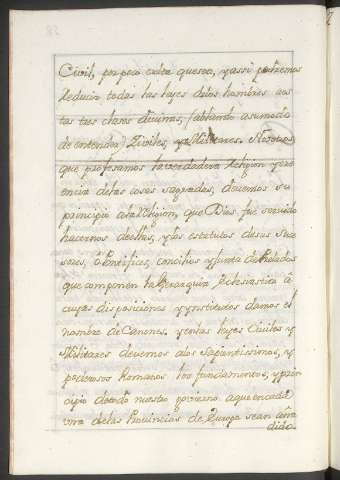 Civil, por poco culta que sea, y assi podremos
deducir todas las leyes delos hombres aes
tas tres clases divinas, (ablando asu modo
de entender) Ziviles, y Militares. Nosotros
que profesamos la verdadera Religion y re
encia delas cosas sagradas, devemos su
principio ala Religion, que Dios fue servido
hacernos de ellas, y los estatutos desus suce
sores, ò Pontifices, concilios y Junta de Prelados
que componen la Gerarquia Eclesiastica à
cuyas disposiciones y Institutos damos el
nombre de Canones. y en las leyes Civiles y
Militares devemos alos Sapientissimos, y
poderosos Romanos los fundamentos, y prin
cipio de todo nuestro govierno. aque en cada
vna delas Provincias de Europa sean
dido